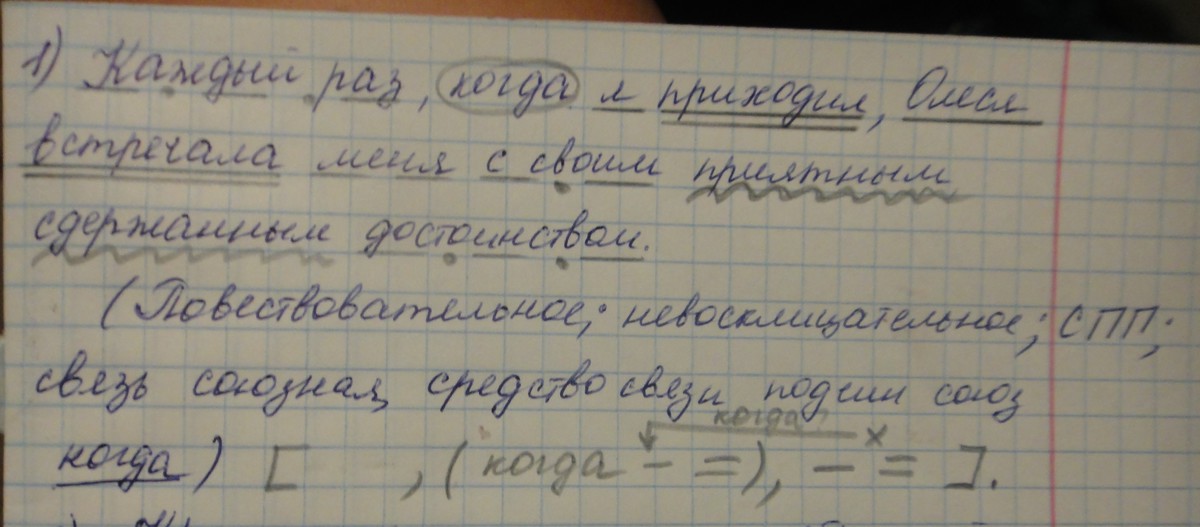 1) Каждый раз, когда я приходил, Олеся
встречала меня с своим приятным
сдержанным достоинством.
(Повествовательное; невосклицательное; СПП;
связь союзная, средство связи подчин союз
когда
когда) [ , ( когда – = ), – = ].